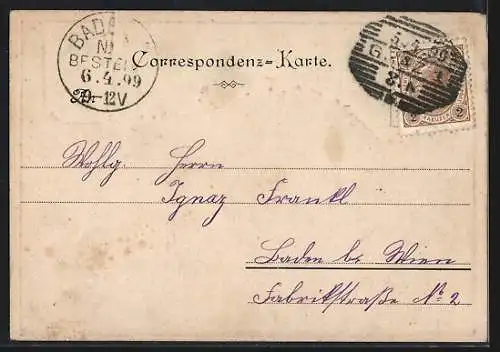 BADEN
BESTELLT
6.4.99
9–12V
Correspondenz-Karte.
2
Wohlg. Herrn
Ignaz Frankl
Baden be Wien
Fabrikstraße No 2